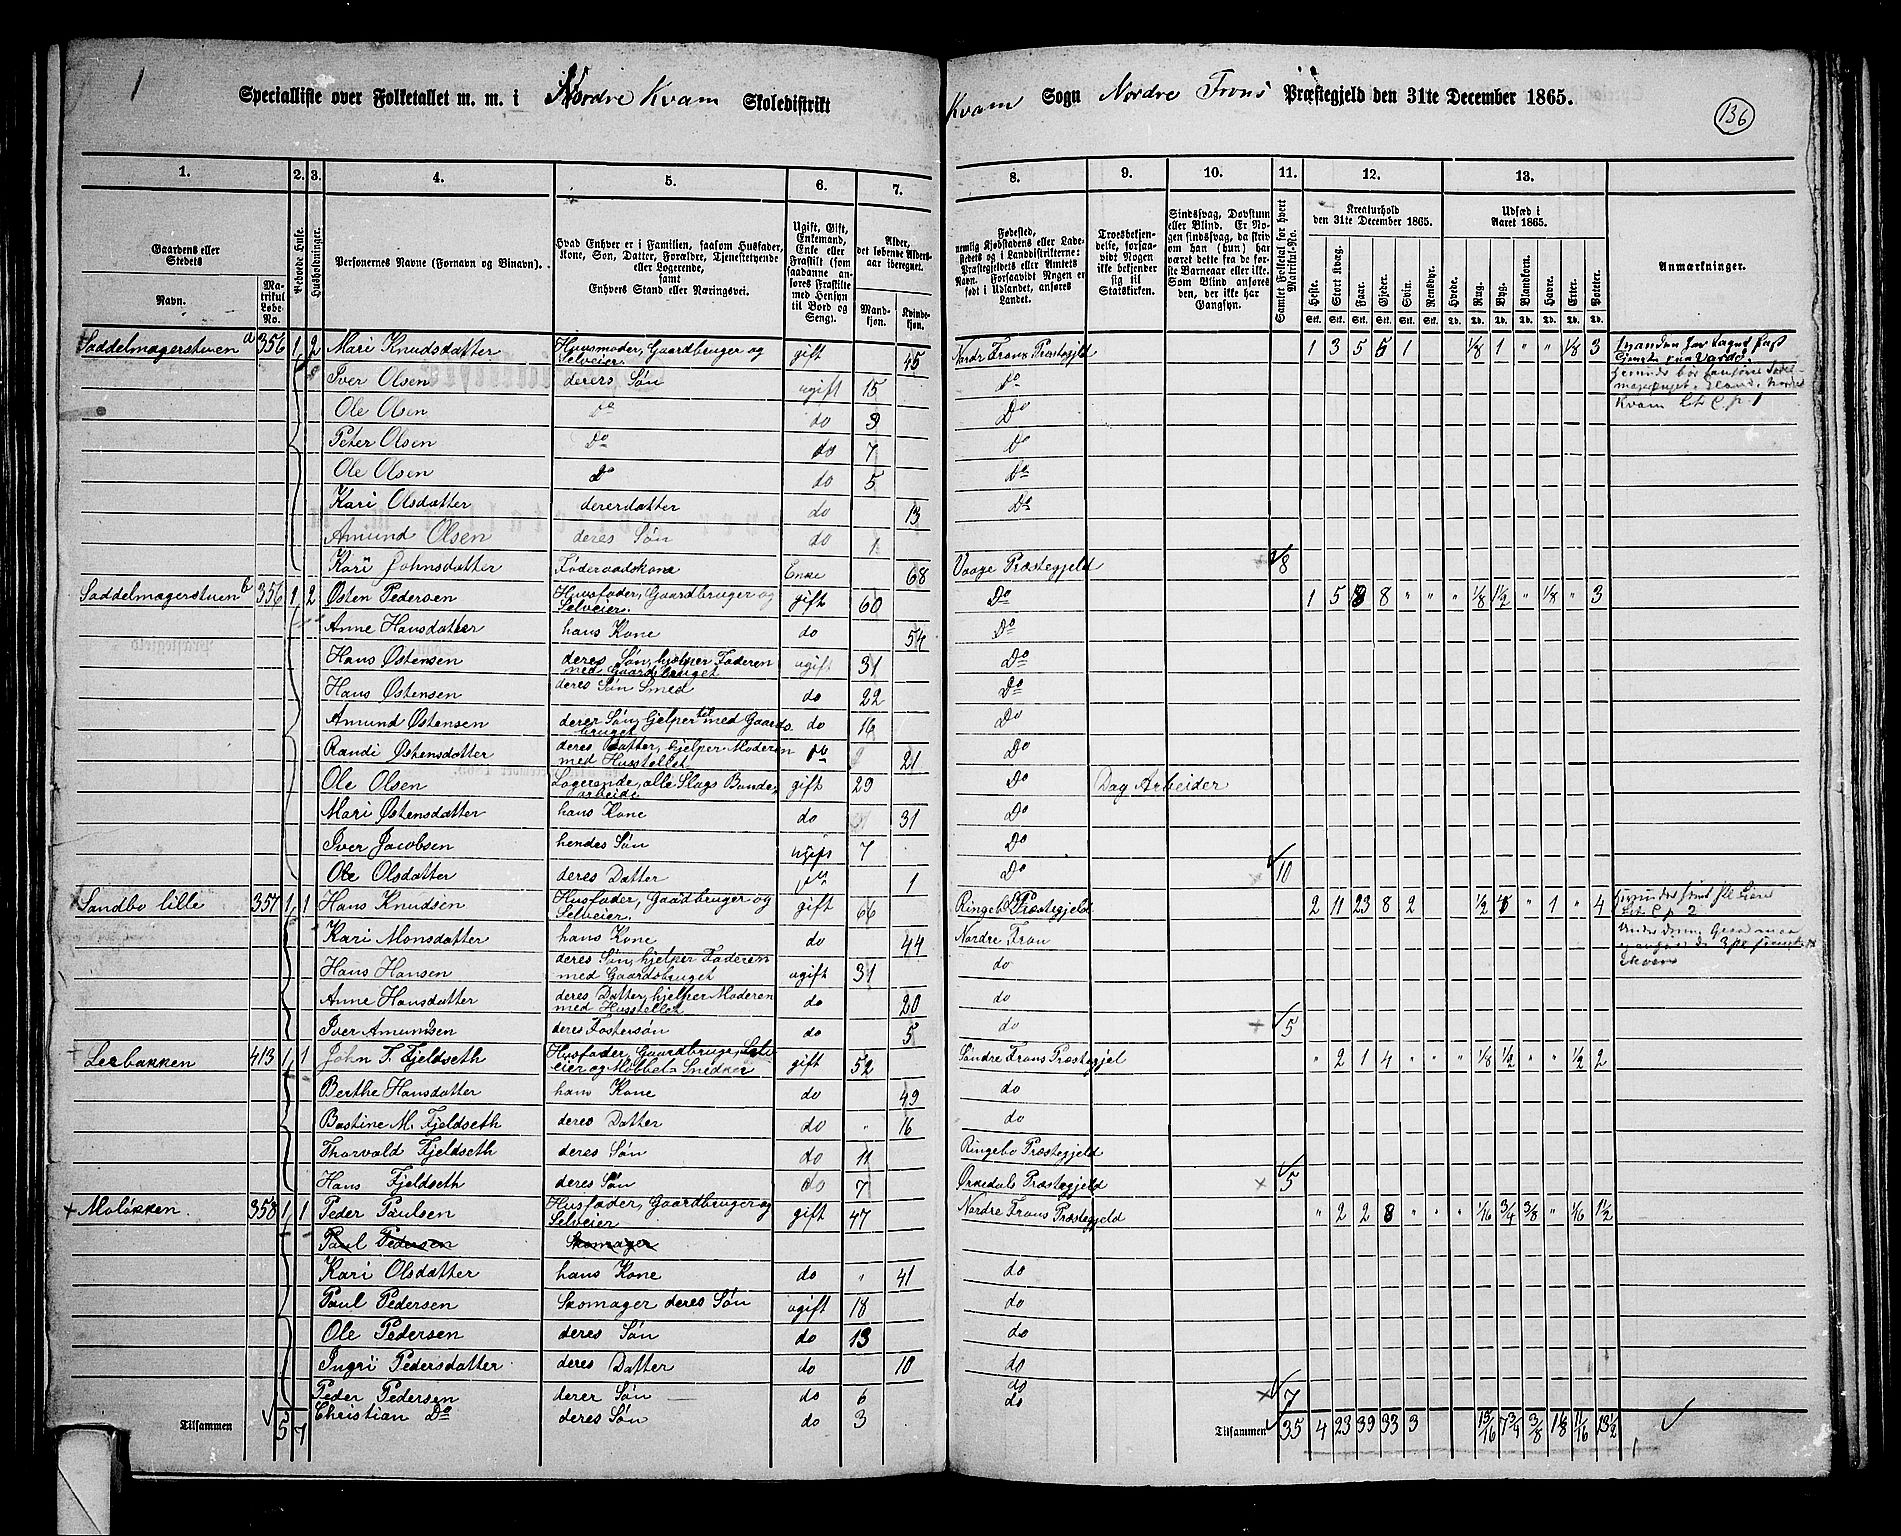 1
Specialliste over Folketallet m. m. i Nordre Kvam Skoledistrikt Kvam Sogn Nordre Frons Præstegjeld den 31te December 1865.
136
1. 2. 3. 4. 5. 6. 7. 8. 9. 10. 11. 12. 13.
Gaardens eller Stedets
Navn. Matrikul Løbe-No.
Beboede Huse.
Husholdninger.
Personernes Navne (Fornavn og Binavn).
Hvad Enhver er i Familien, saasom Husfader, Kone, Søn, Datter, Forældre, Tjenestetyende eller Logerende, samt Enhvers Stand eller Næringsvei.
Ugift, Gift, Enkemand, Enke eller Fraskilt (som saadanne anføres Fraskilte med Hensyn til Bord og Seng).
Alder, det løbende Aldersaar iberegnet.
Mandkjøn. Kvindekjøn.
Fødested, nemlig Kjøbstadens eller Ladestedets og i Landdistrikterne: Præstegjeldets eller Amtets Navn. Forsaavidt Nogen er født i Udlandet, anføres Landet.
Troesbekjendelse, forsaavidt Nogen ikke bekjender sig til Statskirken.
Sindssvag, Døvstum eller Blind. Er Nogen sindssvag, da skrives om han (hun) har været dette fra de første Barneaar eller ikke. Som Blind anføres den, der ikke har Gangsyn.
Samlet Folketal for hvert Matrikul-No.
Kreaturhold den 31te December 1865.
Heste. Stort Kvæg. Faar. Gjeder. Svin. Rensdyr.
Stk. Stk. Stk. Stk. Stk. Stk.
Udsæd i Aaret 1865.
Hvede. Rug. Byg. Blandkorn. Havre. Erter. Poteter.
Td. Td. Td. Td. Td. Td. Td.
Anmærkninger.
Saddelmagerstuen a 356 1 2 Mari Knudsdatter Huusmoder, Gaardbruger og Selveier gift 45 Nordr Frons Præstegjeld 1 3 5 5 1 1/8 1 " " 1/8 3
Iver Olsen deres Søn ugift 15 Do
Ole Olsen Do do 9 Do
Peter Olsen Do do 7 Do
Kvam Lit C. p. 1
Ole Olsen Do do 5 Do
Kari Olsdatter deresdatter do 13 Do
Amund Olsen deres Søn do 1
Kari Johnsdatter Føderaadskone Enke 68 Vaage Præstegjeld 8
Saddelmagerstuen b 356 1 2 Østen Pedersen Husfader, Gaardbruger og Selveier. gift 60 Do 1 5 8 8 " " " 1/8 1 1/2 " 1/8 " 3
Anne Hansdatter hans Kone do 54 Do
Hans Østensen deres Søn, hjelper Faderen med Gaardsbruget ugift 31 Do
Hans Østensen deres Søn Smed do 22 Do
Amund Østensen deres Søn, hjelper til med Gaardsbruget do 16 Do
Randi Østensdatter deres Datter, hjelper Moderen med Husstellet do 21 Do
Ole Olsen Logerende, alle Slags Bondearbeide gift 29 Do Dag Arbeider
Mari Østensdatter hans Kone do 31 Do
Iver Jacobsen hendes Søn ugift 7 Do
Ole Olsdatter deres Datter do 1 Do 10
Sandbo lille 357 1 1 Hans Knudsen Husfader, Gaardbruger og Selveier. gift 66 Ringebo Præstegjeld 2 11 23 8 2 1/2 4 " 1 " 4
Lit C p. 2
Kari Monsdatter hans Kone do 44 Nordre Fron
Hans Hansen deres Søn, hjelper Faderen med Gaardsbruget ugift 31 do
Anne Hansdatter deres Datter, hjelper Moderen med Husstellet do 20 do
Iver Amundsen deres Fostersøn do 5 do 5
Leebakken 413 1 1 John F. Fjeldseth Husfader, Gaardbruger, Selveier og Møbbel Snedker gift 52 Søndre Frons Præstegjel " 2 1 4 " " " 1/8 1/2 " " 1/2 2
Berthe Hansdatter hans Kone do 49 do
Bastine M. Fjeldseth deres Datter do " 16 do
Thorvald Fjeldseth deres Søn do 11 Ringebo Præstegjeld
Hans Fjeldseth deres Søn do 7 Orkedals Præstegjeld 5
Moløkken. 358 1 1 Peder Paulsen Husfader, Gaardbruger og Selveier gift 47 Nordre Frons Præstegjeld " 2 2 8 " " " 1/16 3/4 3/8 " 1/16 1 1/2
Paul Pedersen Skomager
Kari Olsdatter hans Kone do " 41 do
Paul Pedersen Skomager deres Søn ugift 18 do
Ole Pedersen deres Søn do 13 do
Ingri Pedersdatter deres Datter do 10 do
Peder Pedersen deres Søn do 6 do 7
Christian Do deres Søn do 3 do
Tilsammen 5 7 Tilsammen 35 4 23 39 33 3 15/16 7 3/4 3/8 1 1/8 11/16 13 1/2